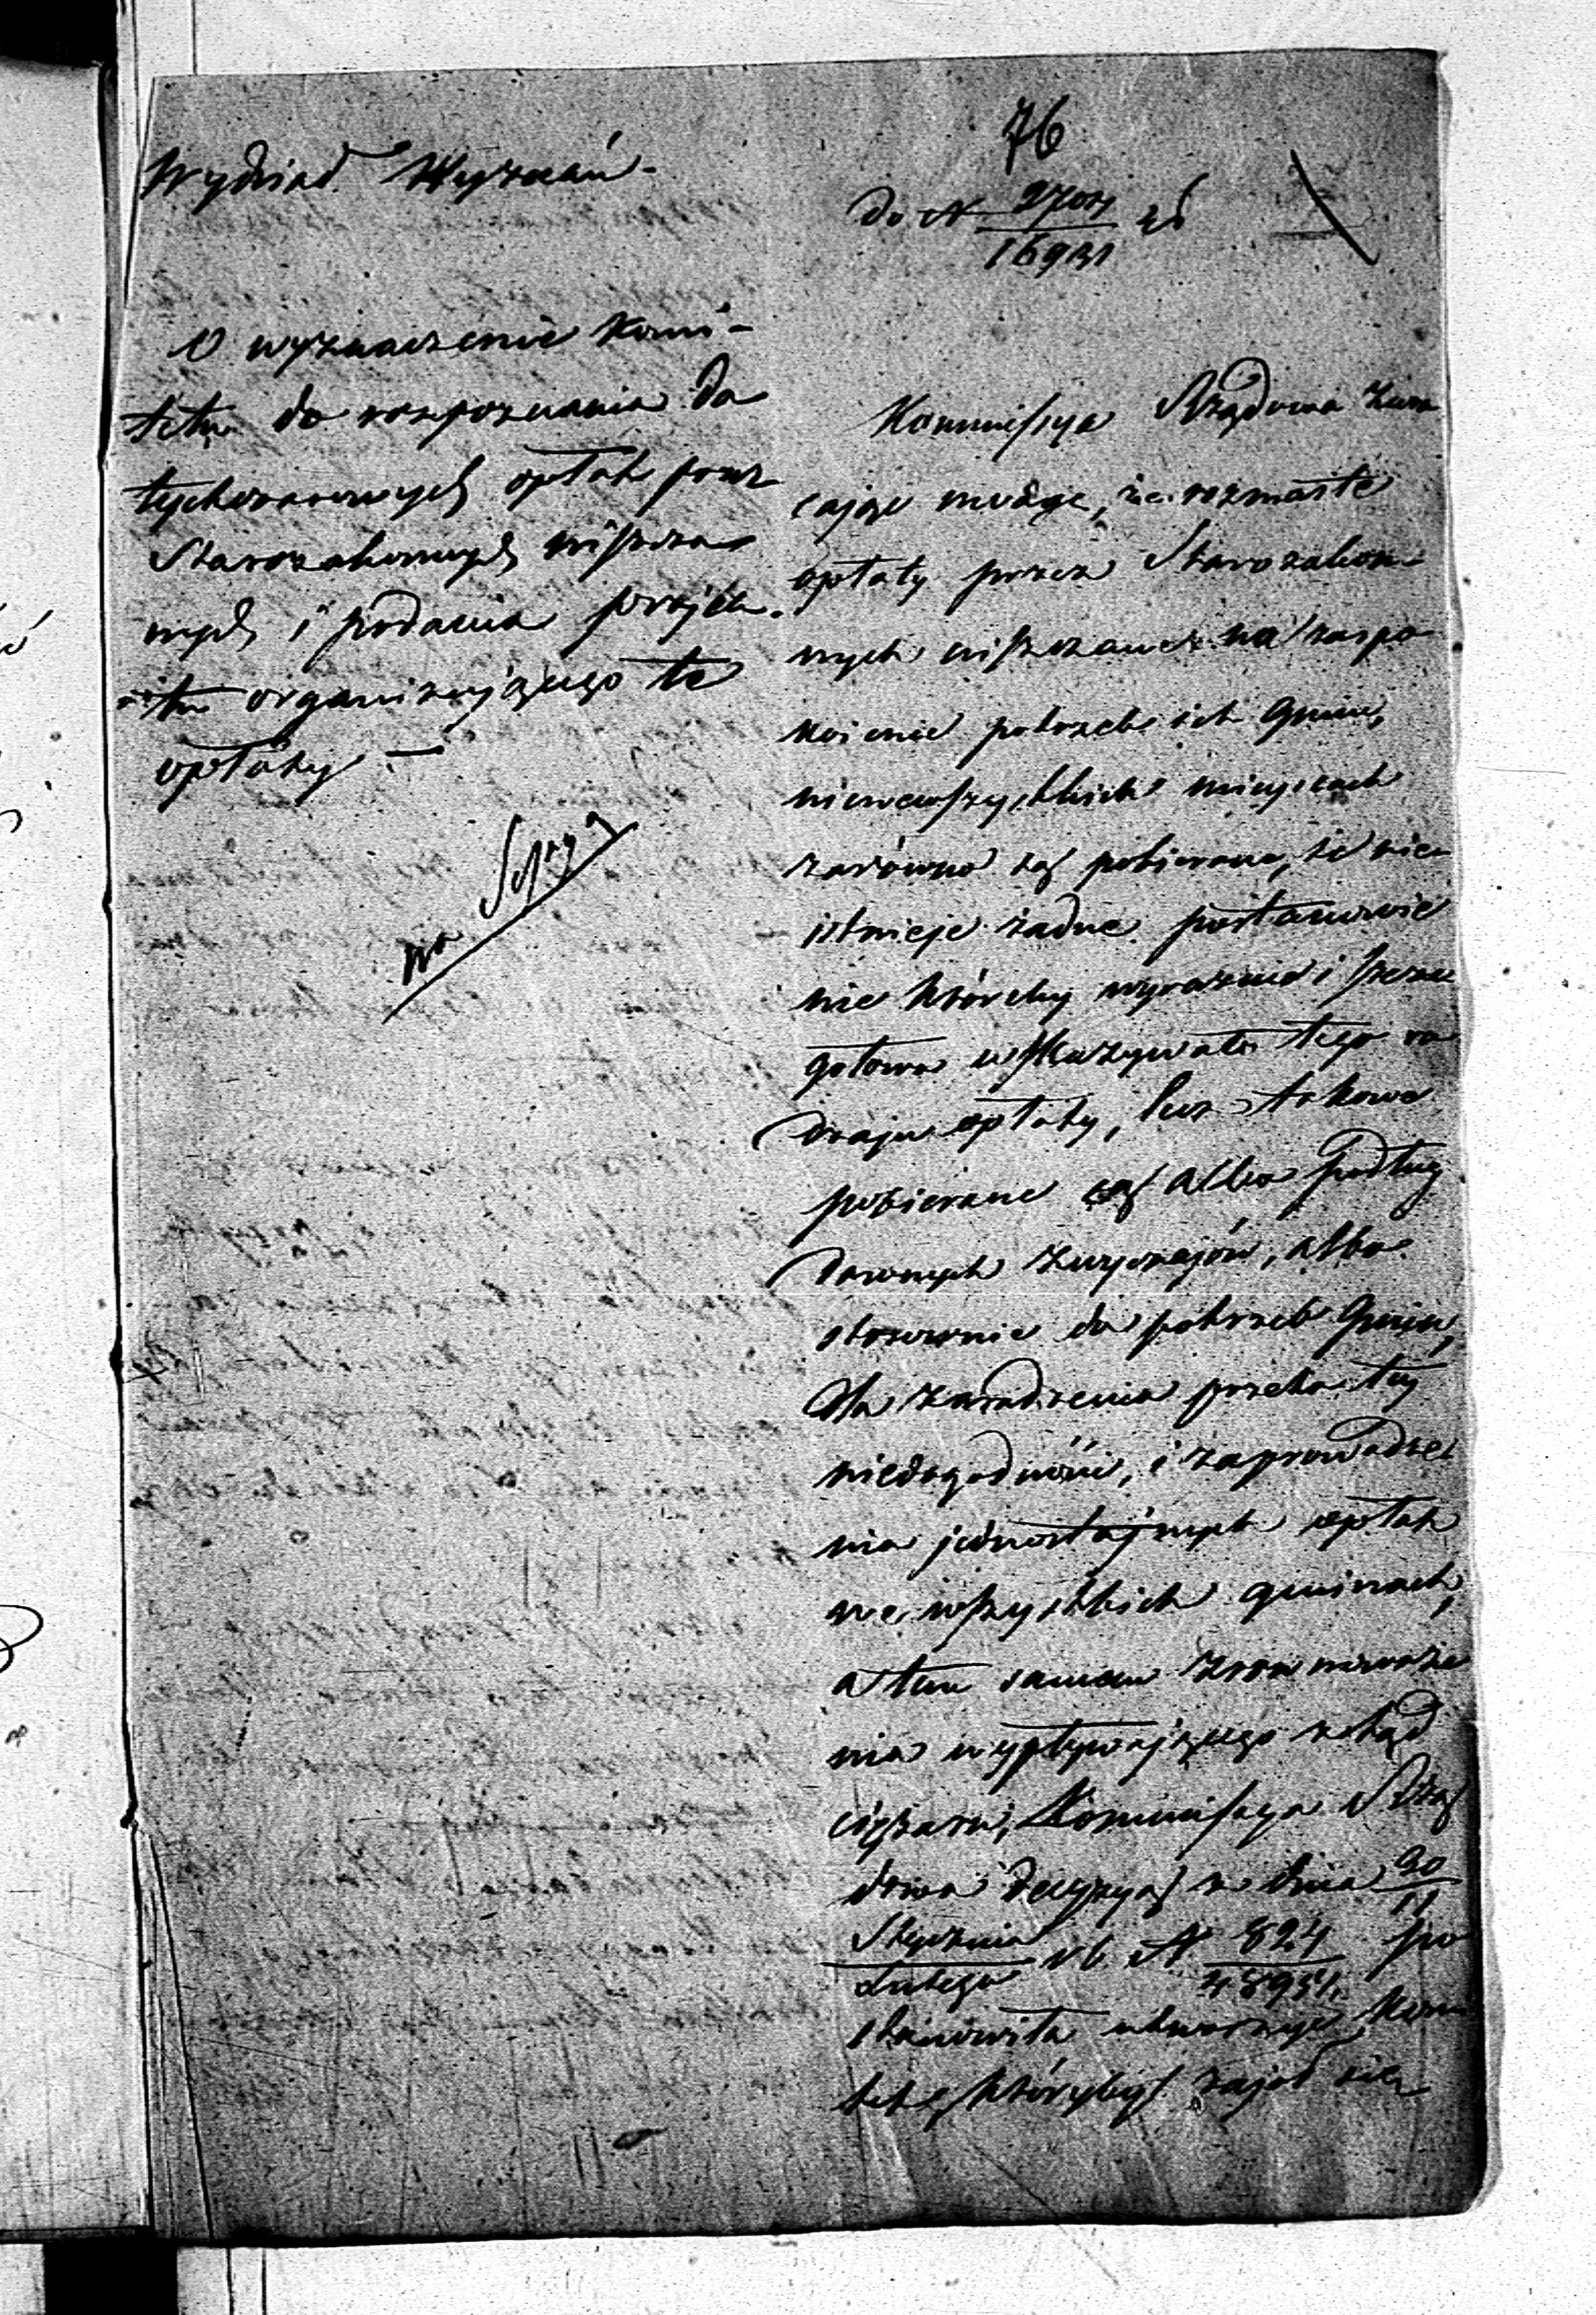 76
Wydział Wyznań.
do N 2704/16931 ź
O wyznaczenie Komi-
tetu do rozpoznania do
tychczasowych opłat przez
Starozakonnych uiszcza
nych i podania projek
tu organizującego te
opłaty —
na Sessyą
Kommissya Rządowa zwra
cając uwagę, że rozmaite
opłaty przez Starozakon-
nych uiszczane na zaspo-
kojenie potrzeb ich Gmin,
niewewszystkich mieyscach
zarówno są pobierane, że nie
istnieje żadne postanowie
nie któreby wyraznie i szcze
gółowo wskazywało tego ro
dzaju opłaty, lecz takowe
pobierane są albo podług
dawnych zwyczajów, albo
stosownie do potrzeb Gmin,
dla zaradzenia przeto tey
niedogodności, i zaprowadze
nia jednostajnych opłat
we wszystkich gminach,
a tem samem zrównoważe
nia wypływającego ztąd
ciężaru, Kommissya Rzą
dowa decyzyą z dnia 30/11
Stycznia/Lutego rb N 824/4893 po
stanowiła utworzyć Komi
tet, któryby zajął się